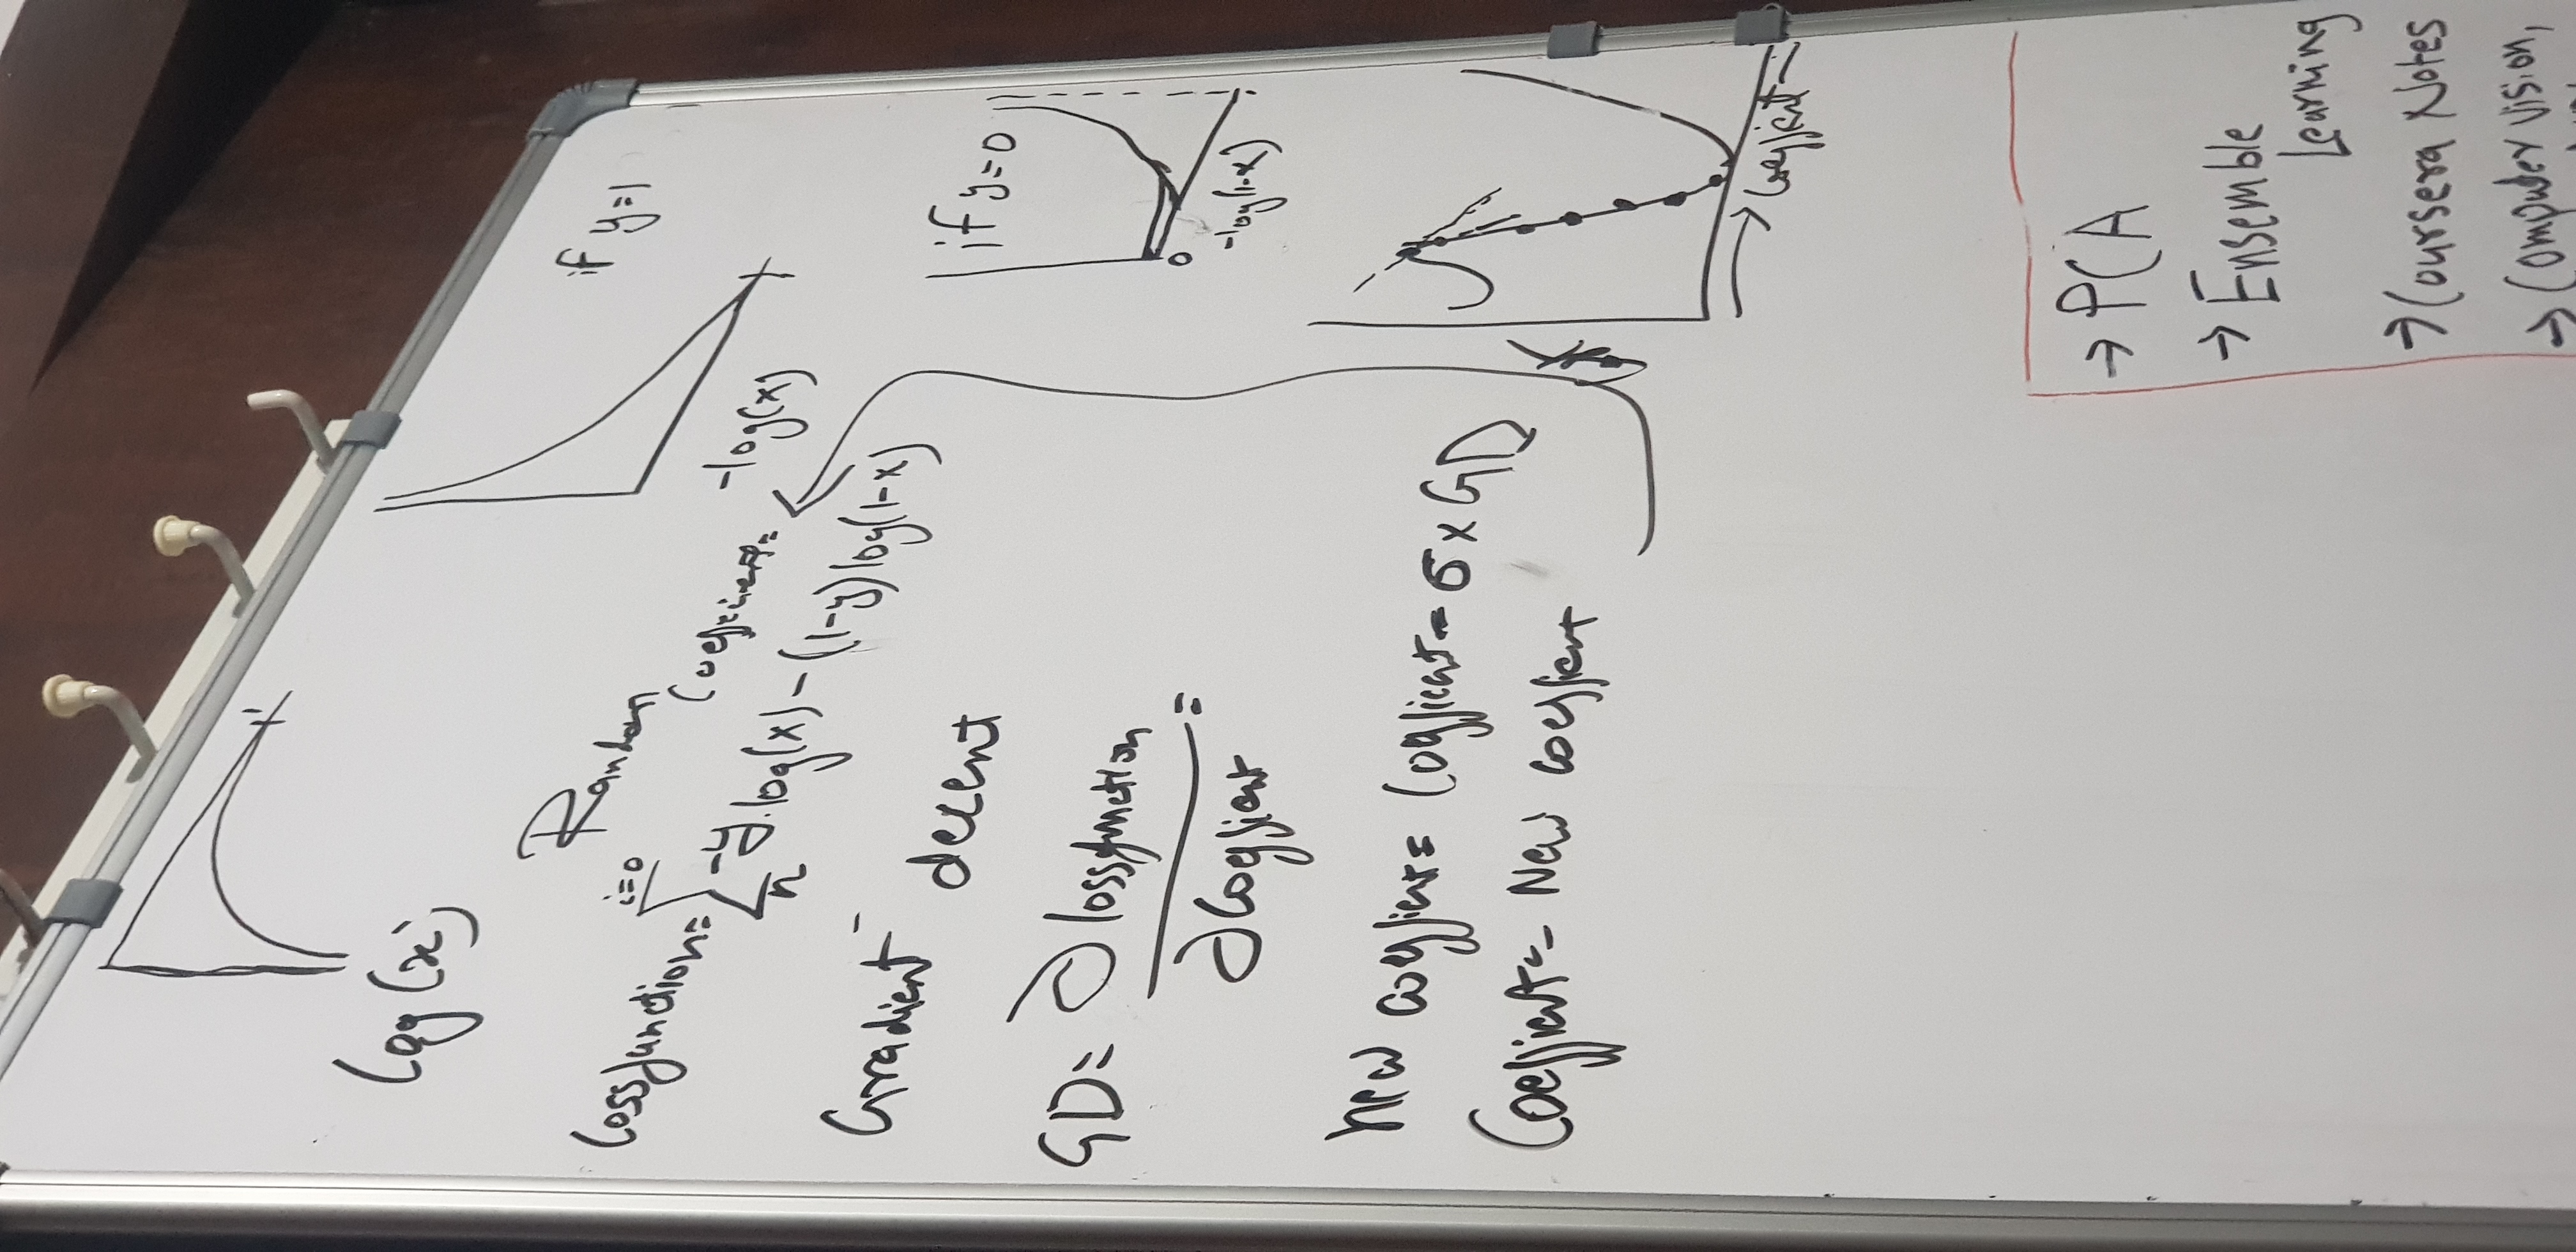 log(x)
1
Random
Coefficient=
Lossfunction= i=0 Σ n -y.log(x)-(1-y)log(1-x)
-log(x)
1
if y=1
Gradient
decent
if y=0
0
-log(1-x)
1
GD= ∂lossfunction
∂Coefficient =
New coefficient= Coefficient- σ×GD
Coefficient= New coefficient
→ Coefficient
→ PCA
→ Ensemble
Learning
→ Coursera Notes
→ Computer Vision,